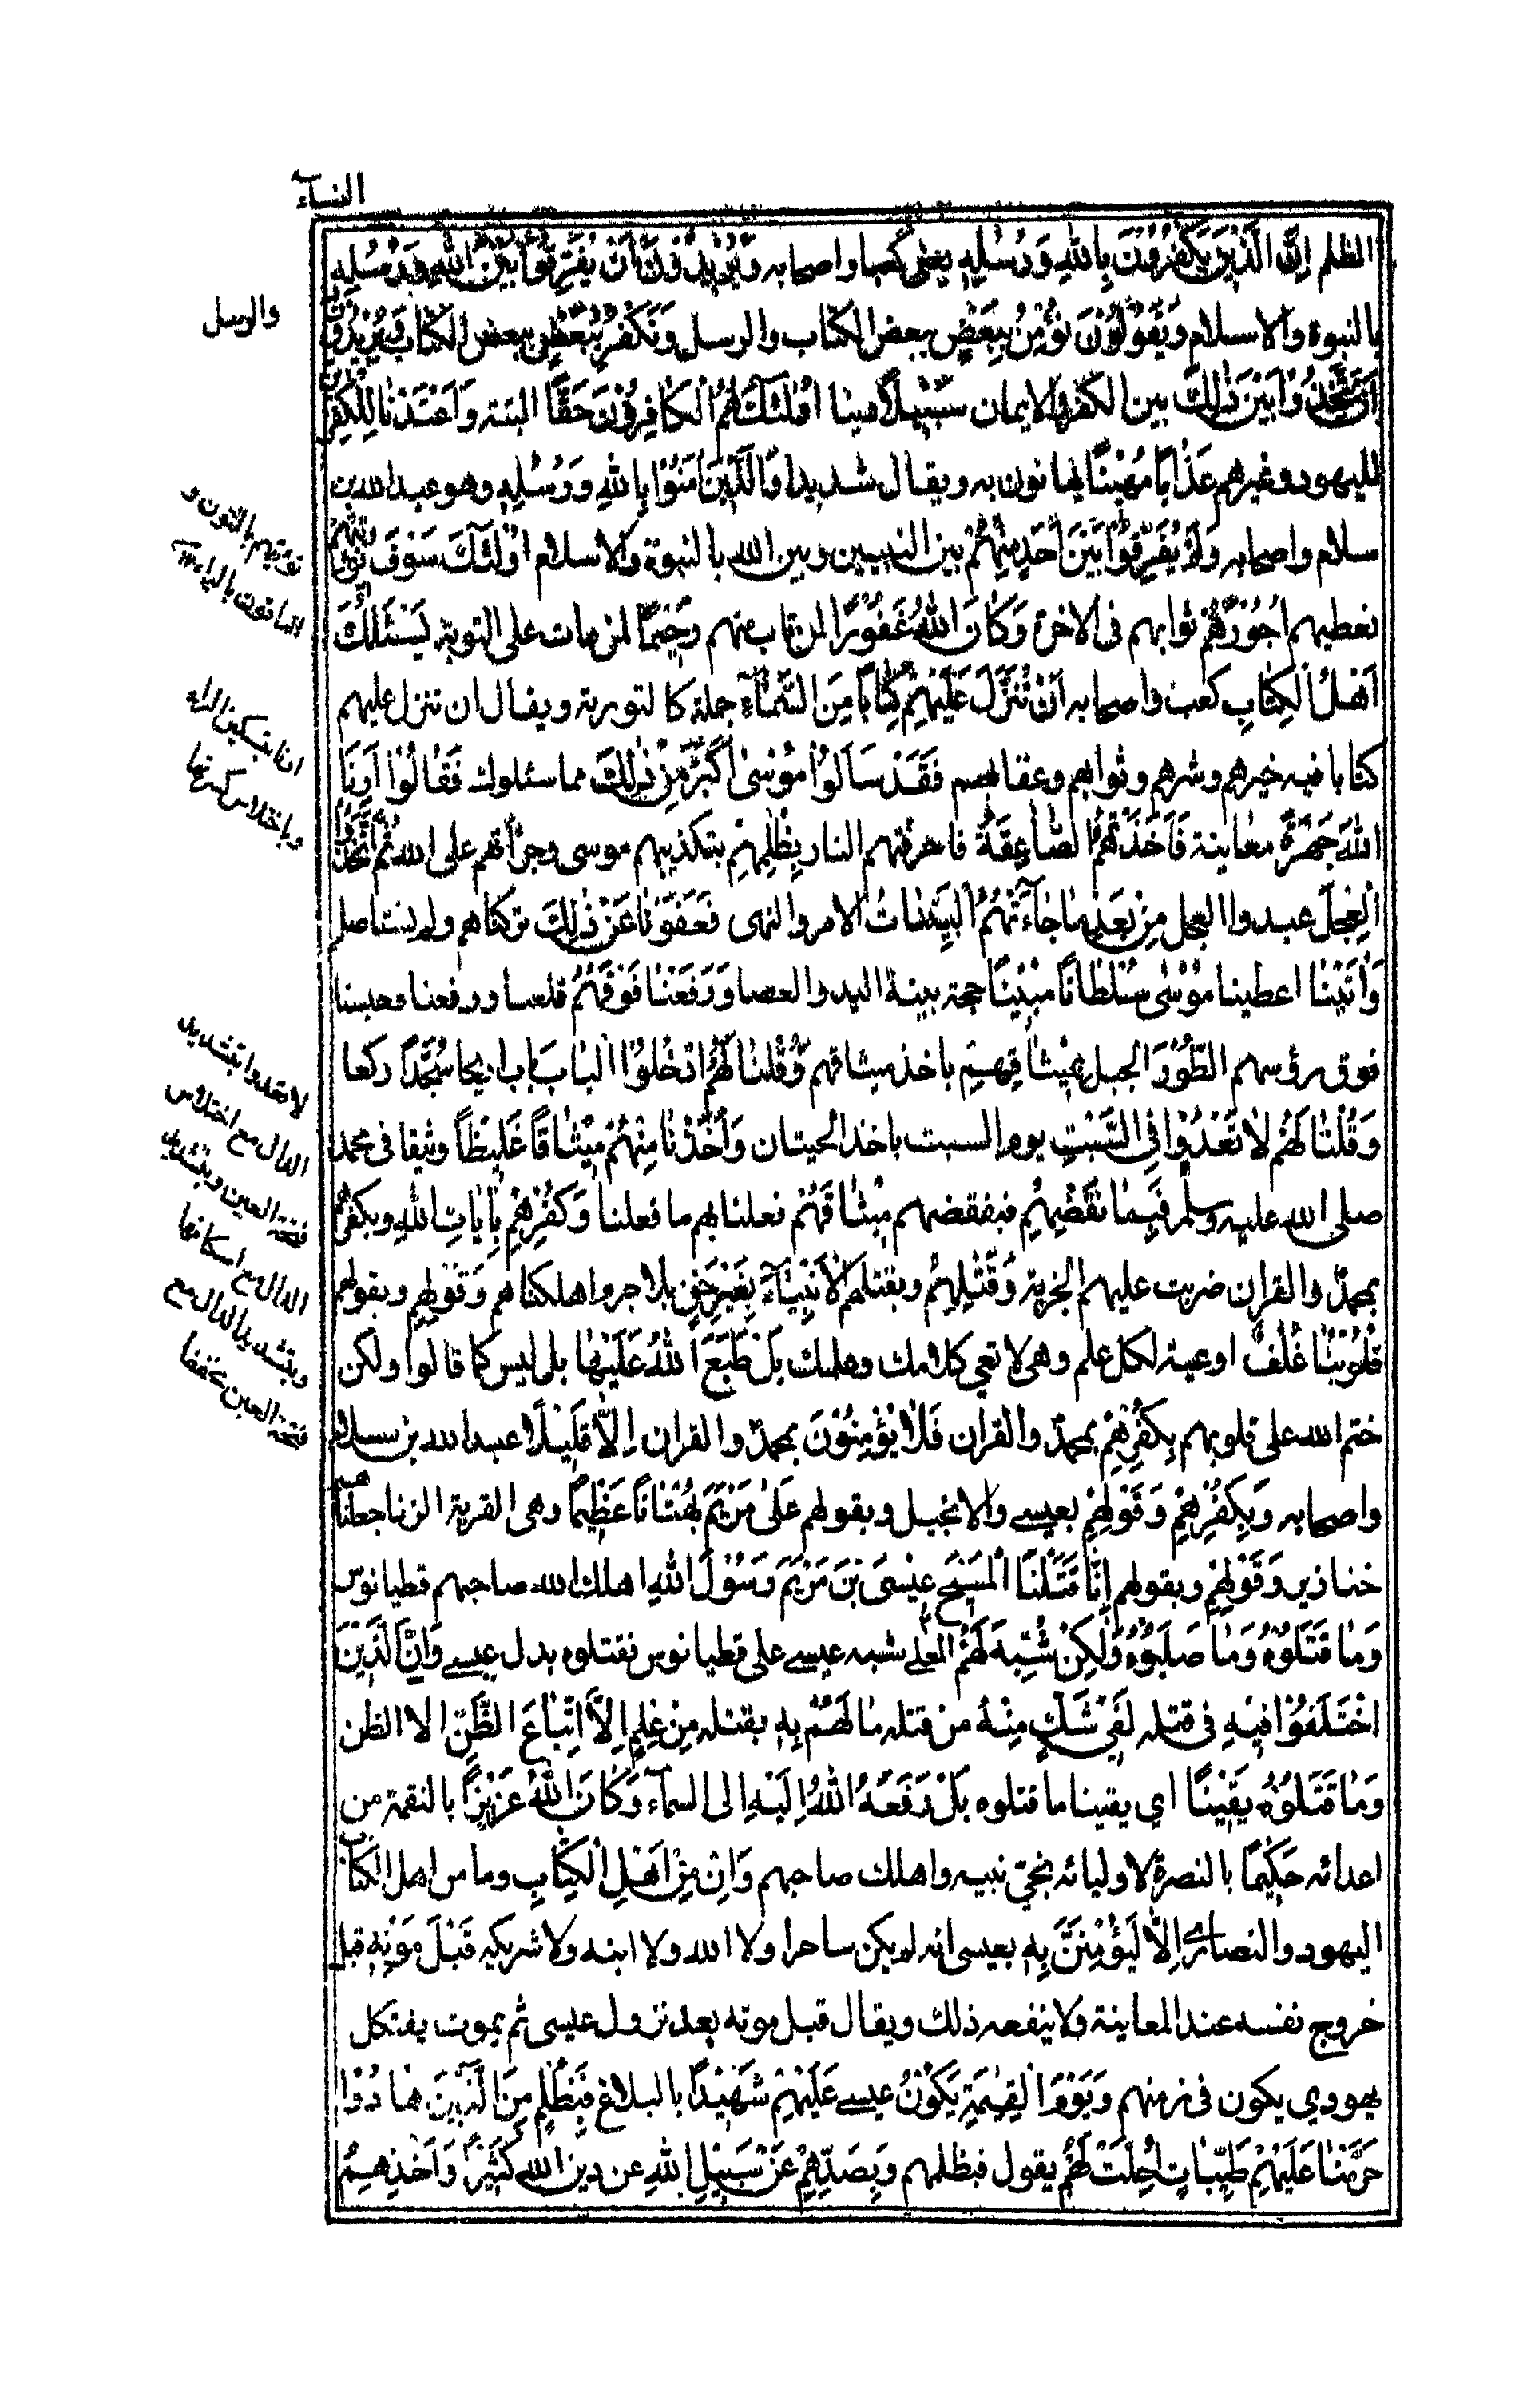 النساء
الظلم اِنَّ الَّذِيْنَ يَكْفُرُوْنَ بِاللّٰهِ وَرُسُلِهٖ يعنى كعبا واصحابه وَيُرِيْدُوْنَ اَنْ يُفَرِّقُوْا بَيْنَ اللّٰهِ وَرُسُلِهٖ
بالنبوة والاسلام وَيَقُوْلُوْنَ نُؤْمِنُ بِبَعْضٍ ببعض الكتاب والرسل وَنَكْفُرُ بِبَعْضٍ ببعض الكتاب وَيُرِيْدُوْنَ
والرسل
اَنْ يَتَّخِذُوْا بَيْنَ ذٰلِكَ بين الكفر والايمان سَبِيْلًا دينا اُولٰئِكَ هُمُ الْكَافِرُوْنَ حَقًّا البتة وَاَعْتَدْنَا لِلْكٰفِرِيْنَ
لليهود وغيرهم عَذَابًا مُهِيْنًا يهانون به ويقال شديدا وَالَّذِيْنَ اٰمَنُوْا بِاللّٰهِ وَرُسُلِهٖ وهو عبد الله بن
سلام واصحابه وَلَمْ يُفَرِّقُوْا بَيْنَ اَحَدٍ مِنْهُمْ بين النبيين وبين الله بالنبوة والاسلام اُولٰئِكَ سَوْفَ نُؤْتِيْهِمْ
نؤتيهم بالنون و
الباقون بالياء
نعطيهم اُجُوْرَهُمْ ثوابهم فى الاخرة وَكَانَ اللّٰهُ غَفُوْرًا لمن تاب منهم رَحِيْمًا لمن مات على التوبة يَسْئَلُكَ
اَهْلُ الْكِتَابِ كعب واصحابه اَنْ تُنَزِّلَ عَلَيْهِمْ كِتَابًا مِنَ السَّمَآءِ جملة كالتورية ويقال ان تنزل عليهم
كتابا فيه خيرهم وشرهم وثوابهم وعقابهم فَقَدْ سَاَلُوْا مُوْسٰى اَكْبَرَ مِنْ ذٰلِكَ مما سئلوك فَقَالُوْا اَرِنَا
ارنا بتسكين الراء
وباختلاس كسرتها
اللّٰهَ جَهْرَةً معاينة فَاَخَذَتْهُمُ الصَّاعِقَةُ فاحرقتهم النار بِظُلْمِهِمْ بتكذيبهم موسى وجرأتهم على الله ثُمَّ اتَّخَذُوا
الْعِجْلَ عبدوا العجل مِنْ بَعْدِ مَا جَآءَتْهُمُ الْبَيِّنَاتُ الامر والنهى فَعَفَوْنَا عَنْ ذٰلِكَ تركناهم ولم نستاصلهم
وَاٰتَيْنَا اعطينا مُوْسٰى سُلْطَانًا مُبِيْنًا حجة بينة اليد والعصا وَرَفَعْنَا فَوْقَهُمُ قلعنا ورفعنا وحبسنا
فوق رؤسهم الطُّوْرَ الجبل بِمِيْثَاقِهِمْ باخذ ميثاقهم وَقُلْنَا لَهُمُ ادْخُلُوا الْبَابَ باب اريحا سُجَّدًا ركعا
وَقُلْنَا لَهُمْ لَا تَعْدُوْا فِى السَّبْتِ يوم السبت باخذ الحيتان وَاَخَذْنَا مِنْهُمْ مِيْثَاقًا غَلِيْظًا وثيقا فى محمد
لا تعدوا بتشديد
الدال مع اختلاس
فتحة العين وبتشديد
الدال مع اسكانها
وبتشديد الدال مع
فتحة العين مخففا
صلى الله عليه وسلم فَبِمَا نَقْضِهِمْ فبنقضهم مِيْثَاقَهُمْ فعلنا بهم ما فعلنا وَكُفْرِهِمْ بِاٰيَاتِ اللّٰهِ وبكفرهم
بمحمد والقران ضربت عليهم الجزية وَقَتْلِهِمُ وبقتلهم الْاَنْبِيَآءَ بِغَيْرِ حَقٍّ بلا جرم اهلكناهم وَقَوْلِهِمْ وبقولهم
قُلُوْبُنَا غُلْفٌ اوعية لكل علم وهى لا تعي كلامك وعلمك بَلْ طَبَعَ اللّٰهُ عَلَيْهَا بلى ليس كما قالوا ولكن
ختم الله على قلوبهم بِكُفْرِهِمْ بمحمد والقران فَلَا يُؤْمِنُوْنَ بمحمد والقران اِلَّا قَلِيْلًا عبد الله بن سلام
واصحابه وَبِكُفْرِهِمْ وَقَوْلِهِمْ بعيسى والانجيل وبقولهم عَلٰى مَرْيَمَ بُهْتَانًا عَظِيْمًا وهى الفرية الزنا جعلناهم
خنازير وَقَوْلِهِمْ وبقولهم اِنَّا قَتَلْنَا الْمَسِيْحَ عِيْسَى بْنَ مَرْيَمَ رَسُوْلَ اللّٰهِ اهلك الله صاحبهم قطيانوس
وَمَا قَتَلُوْهُ وَمَا صَلَبُوْهُ وَلٰكِنْ شُبِّهَ لَهُمْ القى شبه عيسى على قطيانوس فقتلوه بدل عيسى وَاِنَّ الَّذِيْنَ
اخْتَلَفُوْا فِيْهِ فى قتله لَفِىْ شَكٍّ مِنْهُ من قتله مَا لَهُمْ بِهٖ بقتله مِنْ عِلْمٍ اِلَّا اتِّبَاعَ الظَّنِّ الا الظن
وَمَا قَتَلُوْهُ يَقِيْنًا اي يقينا ما قتلوه بَلْ رَفَعَهُ اللّٰهُ اِلَيْهِ الى السماء وَكَانَ اللّٰهُ عَزِيْزًا بالنقمة من
اعدائه حَكِيْمًا بالنصرة لاوليائه نجى نبيه واهلك صاحبهم وَاِنْ مِنْ اَهْلِ الْكِتَابِ وما من اهل الكتاب
اليهود والنصارى اِلَّا لَيُؤْمِنَنَّ بِهٖ بعيسى انه لم يكن ساحرا ولا الله ولا ابنه ولا شريكه قَبْلَ مَوْتِهٖ قبل
خروج نفسه عند المعاينة ولا ينفعه ذلك ويقال قبل موته بعد نزول عيسى ثم يموت يفتكل
يهودي يكون فى زمنهم وَيَوْمَ الْقِيٰمَةِ يَكُوْنُ عيسى عَلَيْهِمْ شَهِيْدًا بالبلاغ فَبِظُلْمٍ مِنَ الَّذِيْنَ هَادُوْا
حَرَّمْنَا عَلَيْهِمْ طَيِّبَاتٍ اُحِلَّتْ لَهُمْ يقول فبظلمهم وَبِصَدِّهِمْ عَنْ سَبِيْلِ اللّٰهِ عن دين الله كَثِيْرًا وَاَخْذِهِمُ